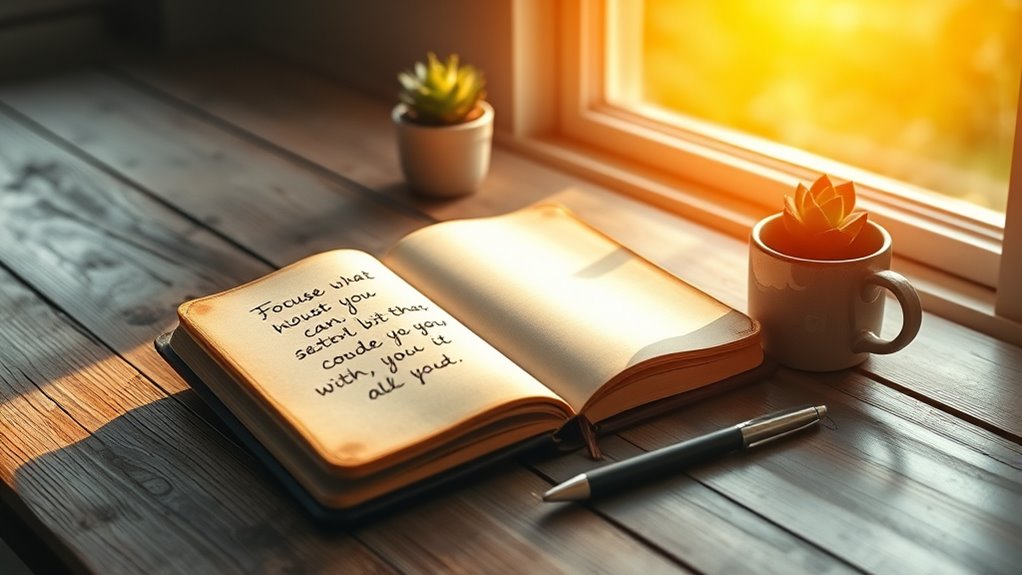 Focuse what
woust you
can, you
setort bit that
coude ye you
with, you it
alk yout.